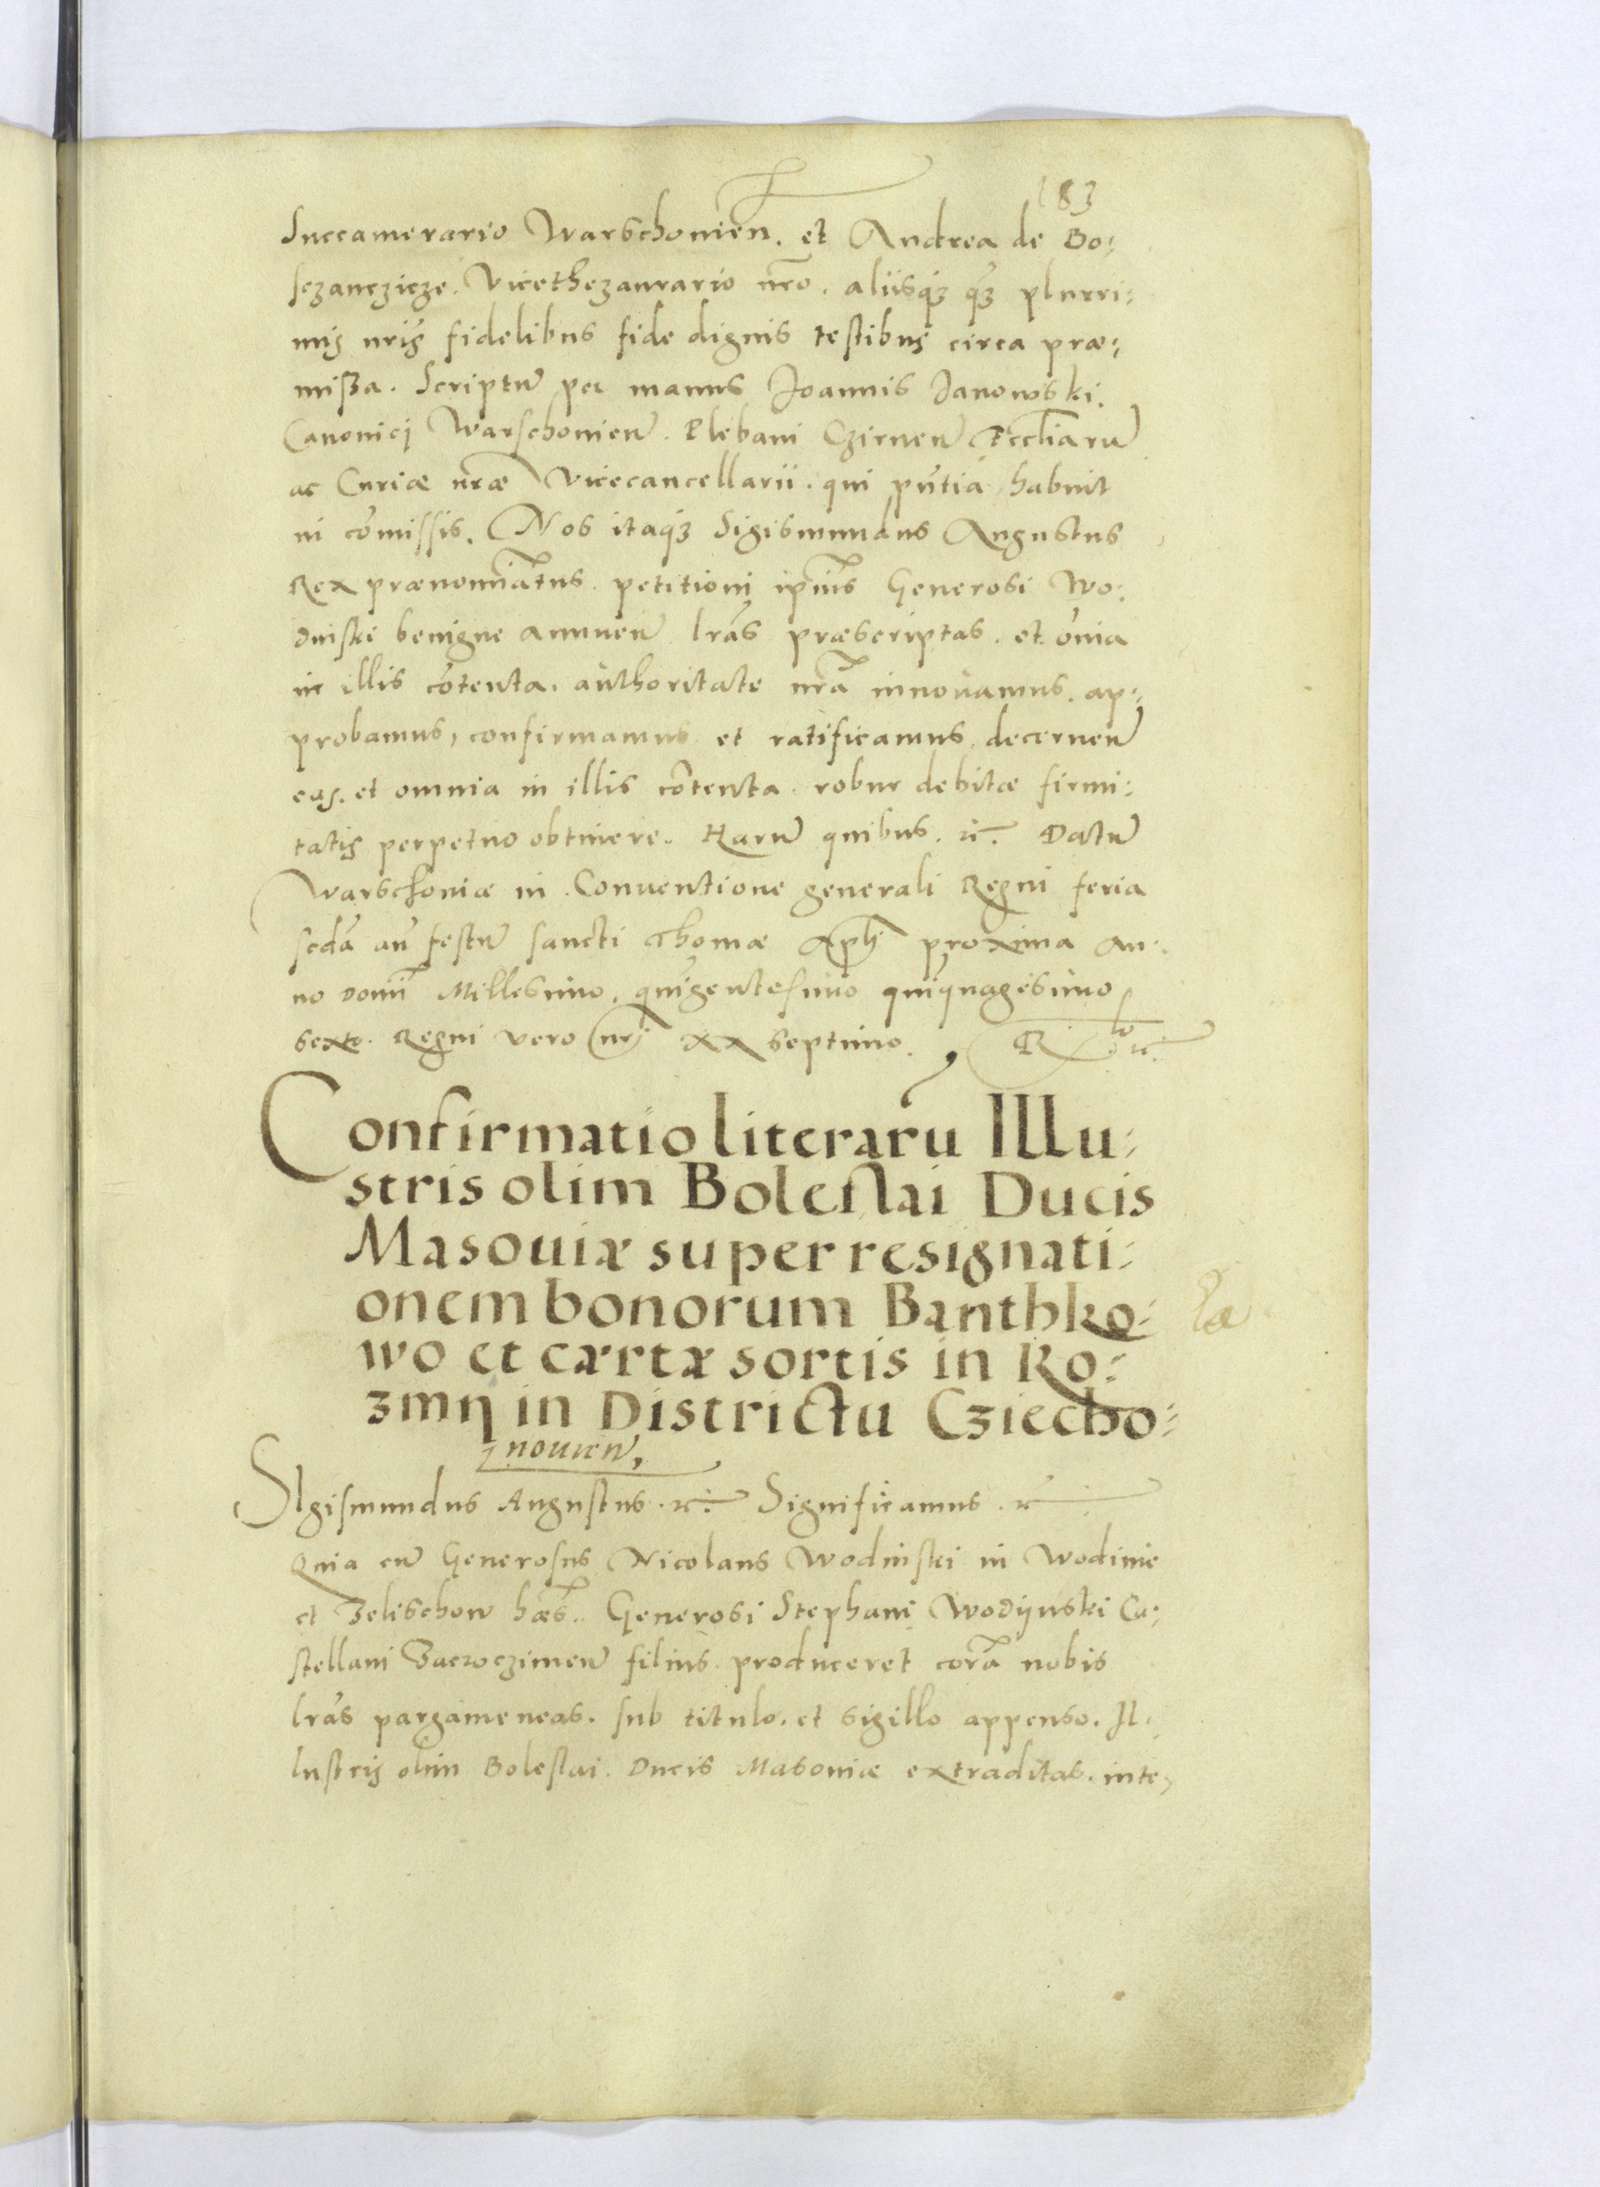 183
Succamerario Warschonien̄. et Andrea de Bo:
sczanczicze. Vicethezaurario nr̄o. aliisqz qz plurri:
mis nris̄ fidelibus fide dignis testibus circa præ:
mißa. Scriptū per manus Joannis Janowski.
Canonici Warschonien̄. Plebani Czirnen̄ Eccl̄iarū
ac Curiæ nr̄æ Vicecancellarii. qui pn̄tia habuit
in com̄issis. Nos itaqz Sigismundus Augustus
Rex prænomiātus. petitioni ipius̄ Generosi Wo:
dinski benigne annuen̄ lr̄as præscriptas. et om̄ia
in illis cōtenta. authoritate nr̄a innovamus. ap:
probamus, confirmamus et ratificamus, decernen̄
eas. et omnia in illis cōtenta. robur debitæ firmi:
tatis perpetuo obtinere. Harū quibus. etc. Datū
Warschoniæ in Conventione generali Regni feria
scdā an̄ festū sancti Thomæ Apl̄i proxima An:
no domī Millesimo, quīgentesimo quīquagesimo
sexto. Regni vero nr̄i XX septimo. R to etc.
Confirmatio literarū Illu:
stris olim Boleslai Ducis
Masouiæ super resignati:
onem bonorum Banthko:
wo et cærtæ sortis in Ro:
zmij in Districtu Cziecho:
nouien̄,
SIgismundus Augustus. etc. Significamus. etc
Quia cū Generosus Nicolaus Wodinski in Wodinie
et Zelischow hæs̄. Generosi Stephani Wodijnski Ca:
stellani Zacroczimen̄ filius. produceret corā nobis
lr̄as pargameneas. sub titulo. et sigillo appenso. Il:
lustris olim Boleslai. Ducis Masoniæ extraditas. inte,